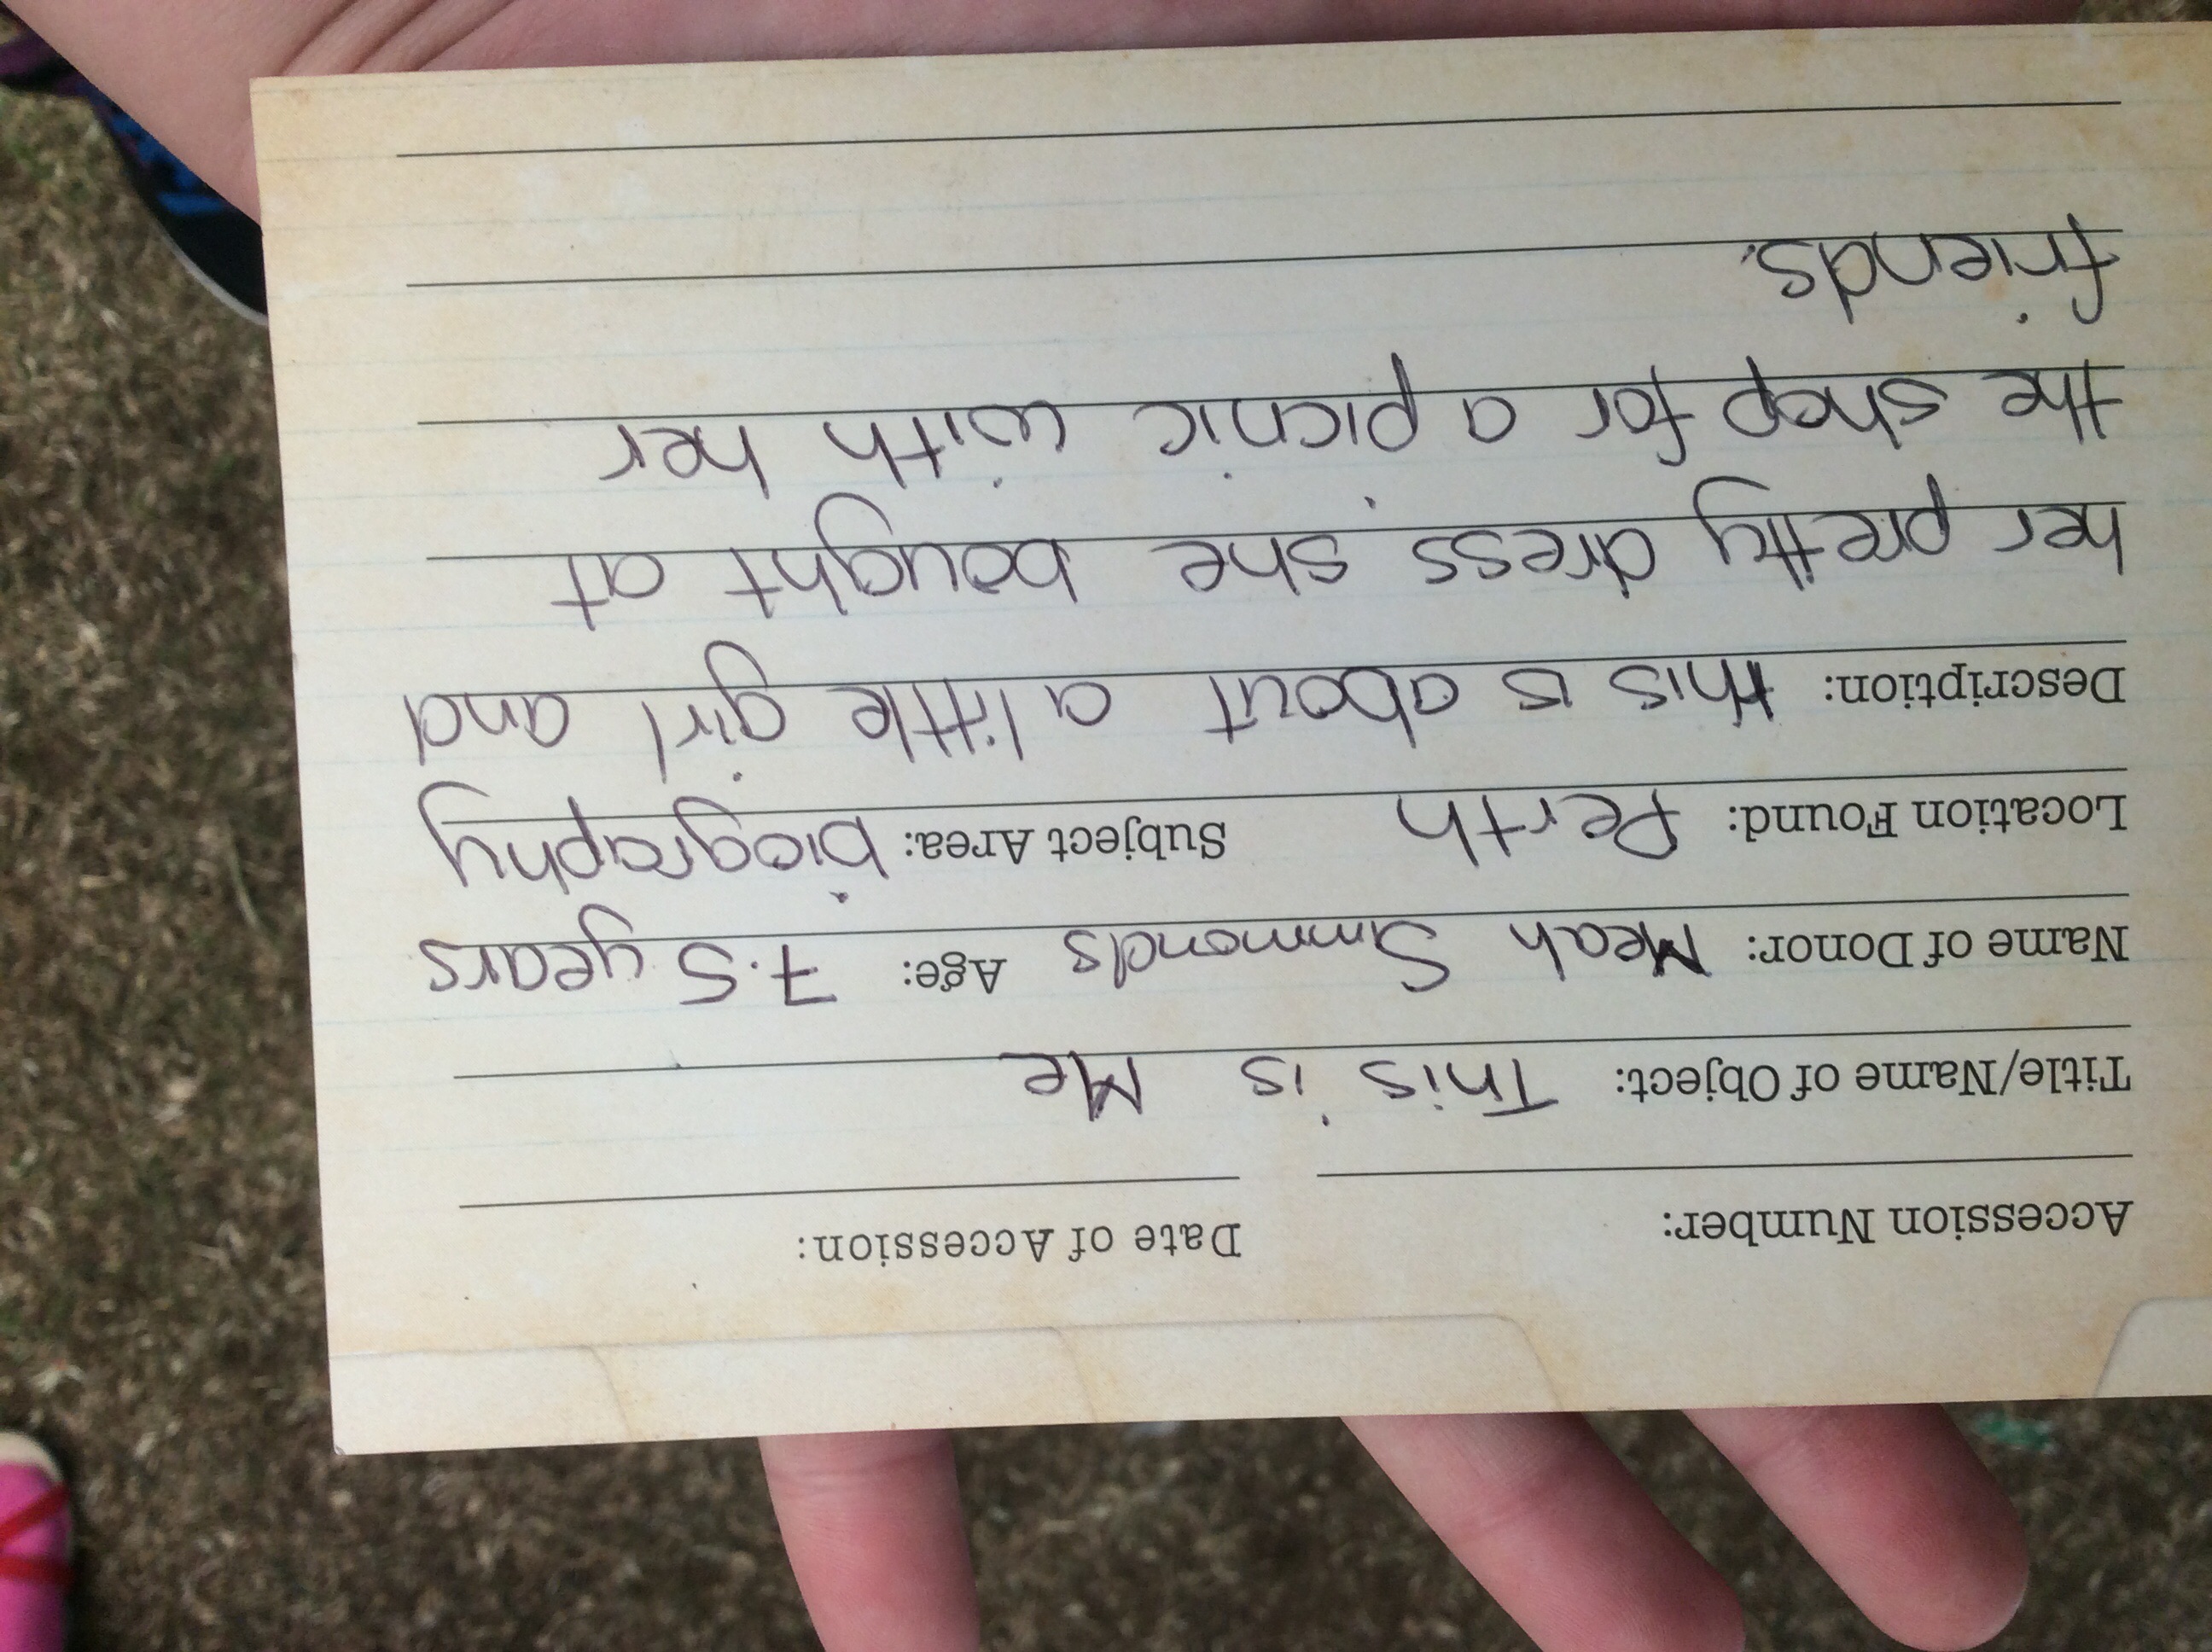 Accession Number: Date of Accession:
Title/Name of Object: This is Me
Name of Donor: Meah Simmonds Age: 7.5 years
Location Found: Perth Subject Area: biography
Description: this is about a little girl and
her pretty dress she bought at
the shop for a picnic with her
friends.